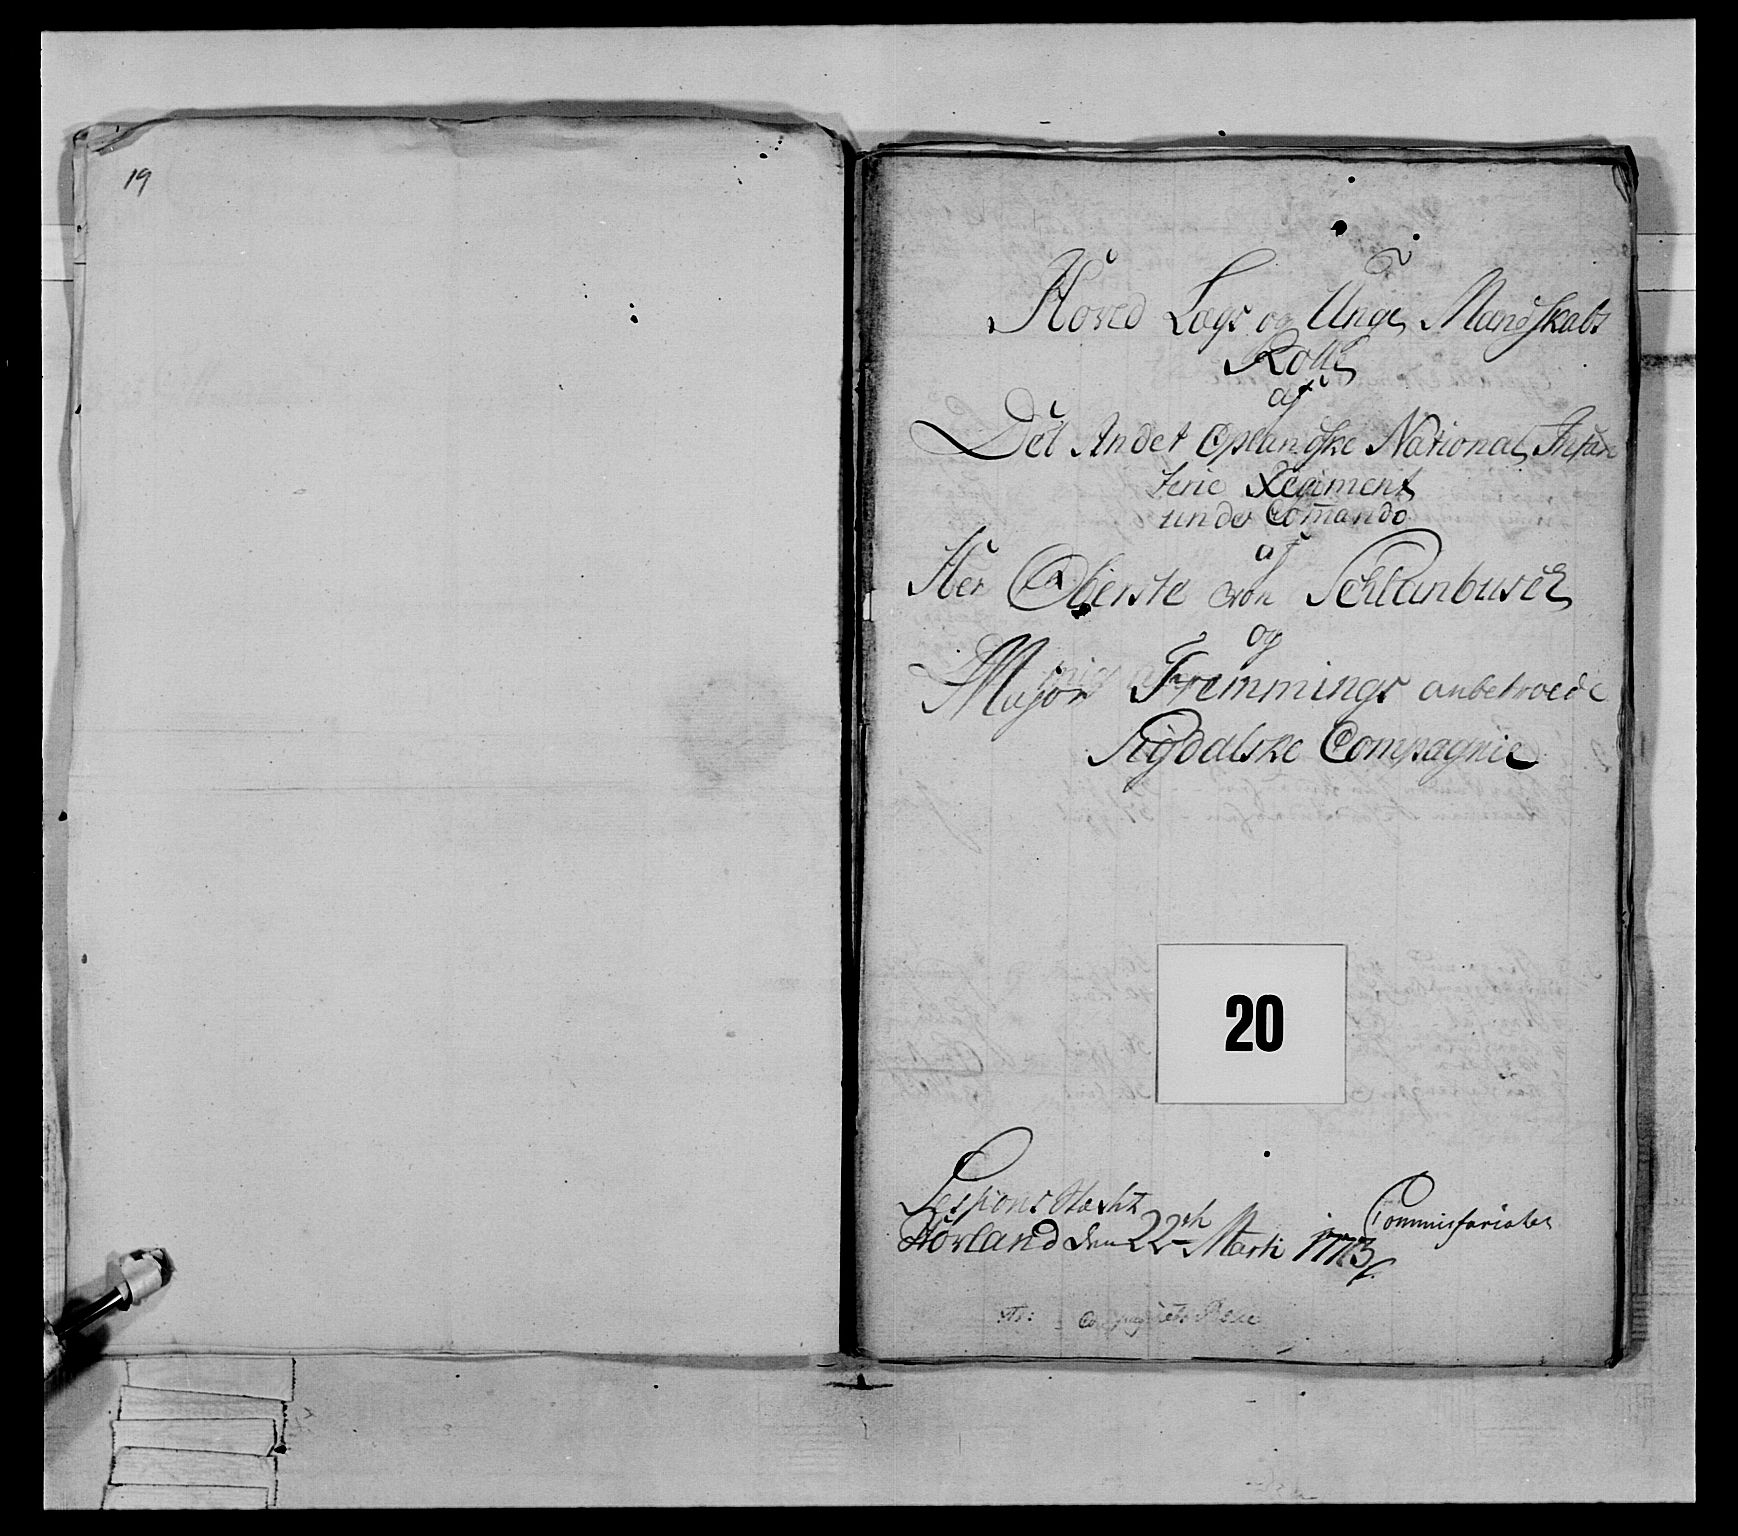 19
Hoved Lægs og Unge Mandskabs
Rolle
af
Det Andet Oplandske National Infan
terie Regiment
under Com̄ando
af
Her Oberste von Schlanbusch
og
Major Fremmings anbetroede
Sigdalske Compagnie
20
Hovland den 22de Marti 1773
Commissariatet